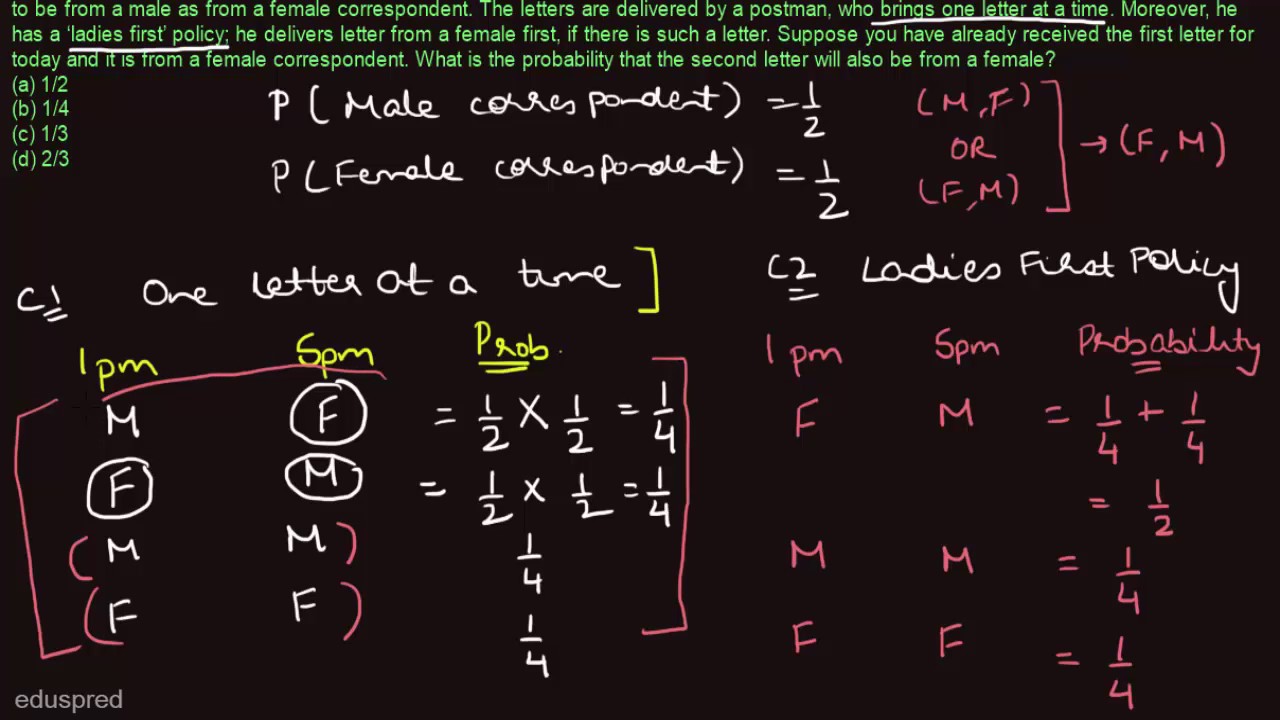 to be from a male as from a female correspondent. The letters are delivered by a postman, who brings one letter at a time. Moreover, he
has a 'ladies first' policy; he delivers letter from a female first, if there is such a letter. Suppose you have already received the first letter for
today and it is from a female correspondent. What is the probability that the second letter will also be from a female?
(a) 1/2
(b) 1/4
(c) 1/3
(d) 2/3
P (Male correspondent) = 1/2
P (Female correspondent) = 1/2
(M, F)
OR
(F, M)
→ (F, M)
C1 One letter at a time ]
1pm 5pm Prob.
M F = 1/2 X 1/2 = 1/4
F M = 1/2 x 1/2 = 1/4
(M M) 1/4
(F F) 1/4
C2 Ladies First Policy
1pm 5pm Probability
F M = 1/4 + 1/4
= 1/2
M M = 1/4
F F = 1/4
eduspred